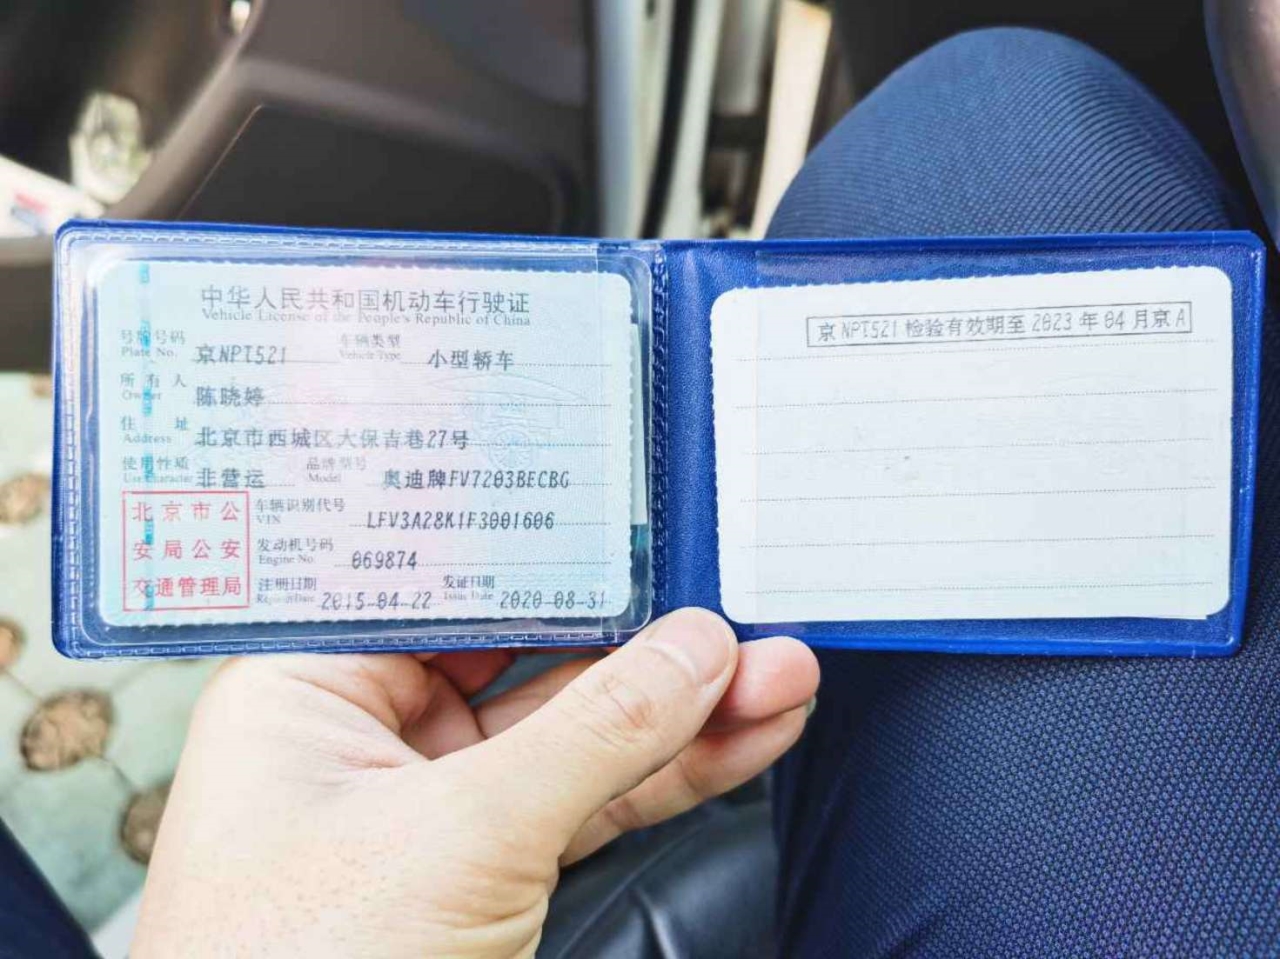 中华人民共和国机动车行驶证
Vehicle License of the People's Republic of China
号牌号码 京NPT521 车辆类型 小型轿车
Plate No. Vehicle Type
所有人 陈晓婷
Owner
住址 北京市西城区大保吉巷27号
Address
使用性质 非营运 品牌型号 奥迪牌FV7203BECBG
Use Character Model
北京市公
安局公安
交通管理局
车辆识别代号 LFV3A28K1F3001606
VIN
发动机号码 069874
Engine No.
注册日期 2015-04-22 发证日期 2020-08-31
Register Date Issue Date
京NPT521 检验有效期至 2023 年 04 月京A